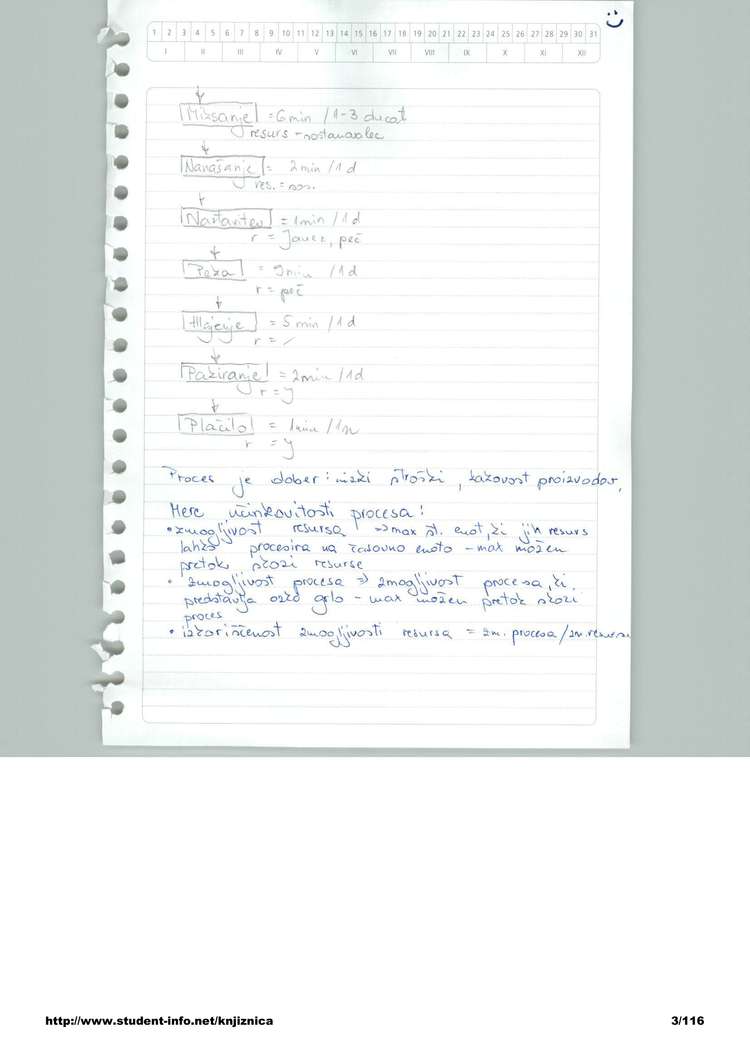 1 2 3 4 5 6 7 8 9 10 11 12 13 14 15 16 17 18 19 20 21 22 23 24 25 26 27 28 29 30 31
I II III IV V VI VII VIII IX X XI XII
Miksanje = 6min / 1-3 ducat
resurs - nostanavlec
Nanašanje = 2min / 1d
res. = nos.
Nastavitev = 1min / 1d
r = Janez, peč
Peka = 9min / 1d
r = peč
Hlajenje = 5min / 1d
r = /
Pakiranje = 2min / 1d
r = J
Plačilo = 1min / 1n
r = J
Proces je dober: nizki stroški, kakovost proizvodov,
Mere učinkovitosti procesa:
• zmogljivost resursa => max št. enot, ki jih resurs
lahko procesira na časovno enoto - max možen
pretok skozi resurse
• zmogljivost procesa => zmogljivost procesa, ki
predstavlja ozko grlo - max možen pretok skozi
proces
• izkoriščenost zmogljivosti resursa = zm. procesa / zm. resursa
http://www.student-info.net/knjiznica
3/116